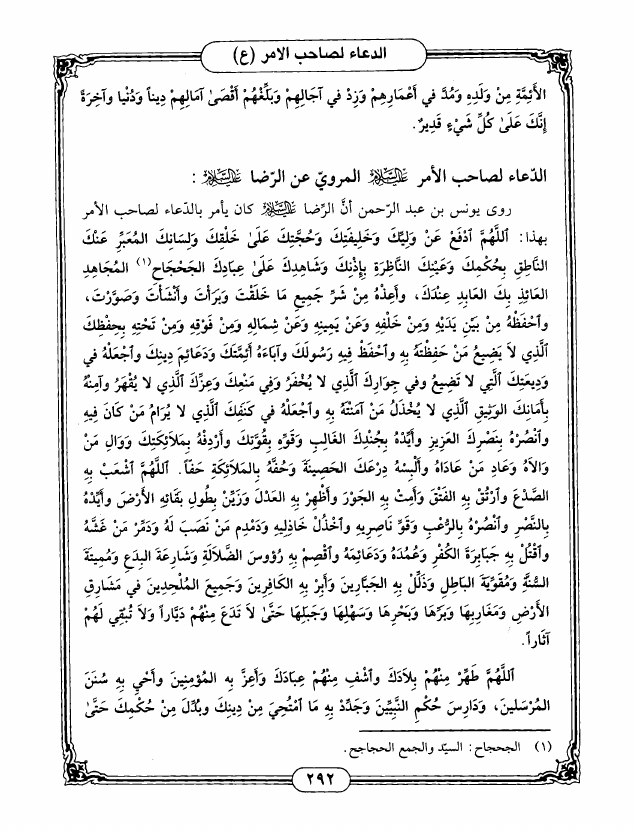 الدعاء لصاحب الامر (ع)
الأَئِمَّةِ مِنْ وَلَدِهِ وَمُدَّ في أَعْمَارِهِمْ وَزِدْ في آجَالِهِمْ وَبَلِّغْهُمْ أَقْصَىٰ آمَالِهِمْ دِيناً وَدُنْيا وَآخِرَةً
إِنَّكَ عَلَىٰ كُلِّ شَيْءٍ قَدِيرٌ.
الدّعاء لصاحب الأمر عَلَيْهِ السَّلَام المرويّ عن الرّضا عَلَيْهِ السَّلَام :
روى يونس بن عبد الرّحمن أنَّ الرِّضا عَلَيْهِ السَّلَام كان يأمر بالدّعاء لصاحب الأمر
بهذا: ٱللَّهُمَّ ٱدْفَعْ عَنْ وَلِيِّكَ وَخَلِيفَتِكَ وَحُجَّتِكَ عَلَىٰ خَلْقِكَ وَلِسَانِكَ المُعَبِّرِ عَنْكَ
النَّاطِقِ بِحُكْمِكَ وَعَيْنِكَ النَّاظِرَةِ بِإِذْنِكَ وَشَاهِدِكَ عَلَىٰ عِبَادِكَ الجَحْجَاحِ(١) المُجَاهِدِ
العَائِذِ بِكَ العَابِدِ عِنْدَكَ، وَأَعِذْهُ مِنْ شَرِّ جَمِيعِ مَا خَلَقْتَ وَبَرَأْتَ وَأَنْشَأْتَ وَصَوَّرْتَ،
وَٱحْفَظْهُ مِنْ بَيْنِ يَدَيْهِ وَمِنْ خَلْفِهِ وَعَنْ يَمِينِهِ وَعَنْ شِمَالِهِ وَمِنْ فَوْقِهِ وَمِنْ تَحْتِهِ بِحِفْظِكَ
ٱلَّذِي لاَ يَضِيعُ مَنْ حَفِظْتَهُ بِهِ وَٱحْفَظْ فِيهِ رَسُولَكَ وَآبَاءَهُ أَئِمَّتَكَ وَدَعَائِمَ دِينِكَ وَٱجْعَلْهُ في
وَدِيعَتِكَ ٱلَّتِي لا تَضِيعُ وفي جِوَارِكَ ٱلَّذِي لا يُخْفَرُ وَفِي مَنْعِكَ وَعِزِّكَ ٱلَّذِي لا يُقْهَرُ وَآمِنْهُ
بِأَمَانِكَ الوَثِيقِ ٱلَّذِي لا يُخْذَلُ مَنْ آمَنْتَهُ بِهِ وَٱجْعَلْهُ في كَنَفِكَ ٱلَّذِي لا يُرَامُ مَنْ كَانَ فِيهِ
وَٱنْصُرْهُ بِنَصْرِكَ العَزِيزِ وَأَيِّدْهُ بِجُنْدِكَ الغَالِبِ وَقَوِّهِ بِقُوَّتِكَ وَأَرْدِفْهُ بِمَلاَئِكَتِكَ وَوَالِ مَنْ
وَالاَهُ وَعَادِ مَنْ عَادَاهُ وَأَلْبِسْهُ دِرْعَكَ الحَصِينَةَ وَحُفَّهُ بِالمَلاَئِكَةِ حَفّاً. ٱللَّهُمَّ ٱشْعَبْ بِهِ
الصَّدْعَ وَٱرْتُقْ بِهِ الفَتْقَ وَأَمِتْ بِهِ الجَوْرَ وَأَظْهِرْ بِهِ العَدْلَ وَزَيِّنْ بِطُولِ بَقَائِهِ الأَرْضَ وَأَيِّدْهُ
بِالنَّصْرِ وَٱنْصُرْهُ بِالرُّعْبِ وَقَوِّ نَاصِرِيهِ وَٱخْذُلْ خَاذِلِيهِ وَدَمْدِمْ مَنْ نَصَبَ لَهُ وَدَمِّرْ مَنْ غَشَّهُ
وَٱقْتُلْ بِهِ جَبَابِرَةَ الكُفْرِ وَعُمُدَهُ وَدَعَائِمَهُ وَٱقْصِمْ بِهِ رُؤوسَ الضَّلاَلَةِ وَشَارِعَةَ البِدَعِ وَمُمِيتَةَ
السُّنَّةِ وَمُقَوِّيَةَ البَاطِلِ وَذَلِّلْ بِهِ الجَبَّارِينَ وَأَبِرْ بِهِ الكَافِرِينَ وَجَمِيعَ المُلْحِدِينَ في مَشَارِقِ
الأَرْضِ وَمَغَارِبِهَا وَبَرِّهَا وَبَحْرِهَا وَسَهْلِهَا وَجَبَلِهَا حَتَّىٰ لاَ تَدَعَ مِنْهُمْ دَيَّاراً وَلاَ تُبْقِي لَهُمْ
آثَاراً.
ٱللَّهُمَّ طَهِّرْ مِنْهُمْ بِلاَدَكَ وَٱشْفِ مِنْهُمْ عِبَادَكَ وَأَعِزَّ بِهِ المُؤْمِنِينَ وَأَحْيِ بِهِ سُنَنَ
المُرْسَلِينَ، وَدَارِسَ حُكْمِ النَّبِيِّينَ وَجَدِّدْ بِهِ مَا ٱمْتُحِيَ مِنْ دِينِكَ وبُدِّلَ مِنْ حُكْمِكَ حَتَّىٰ
(١) الجحجاح: السيّد والجمع الحجاجح.
٢٩٢